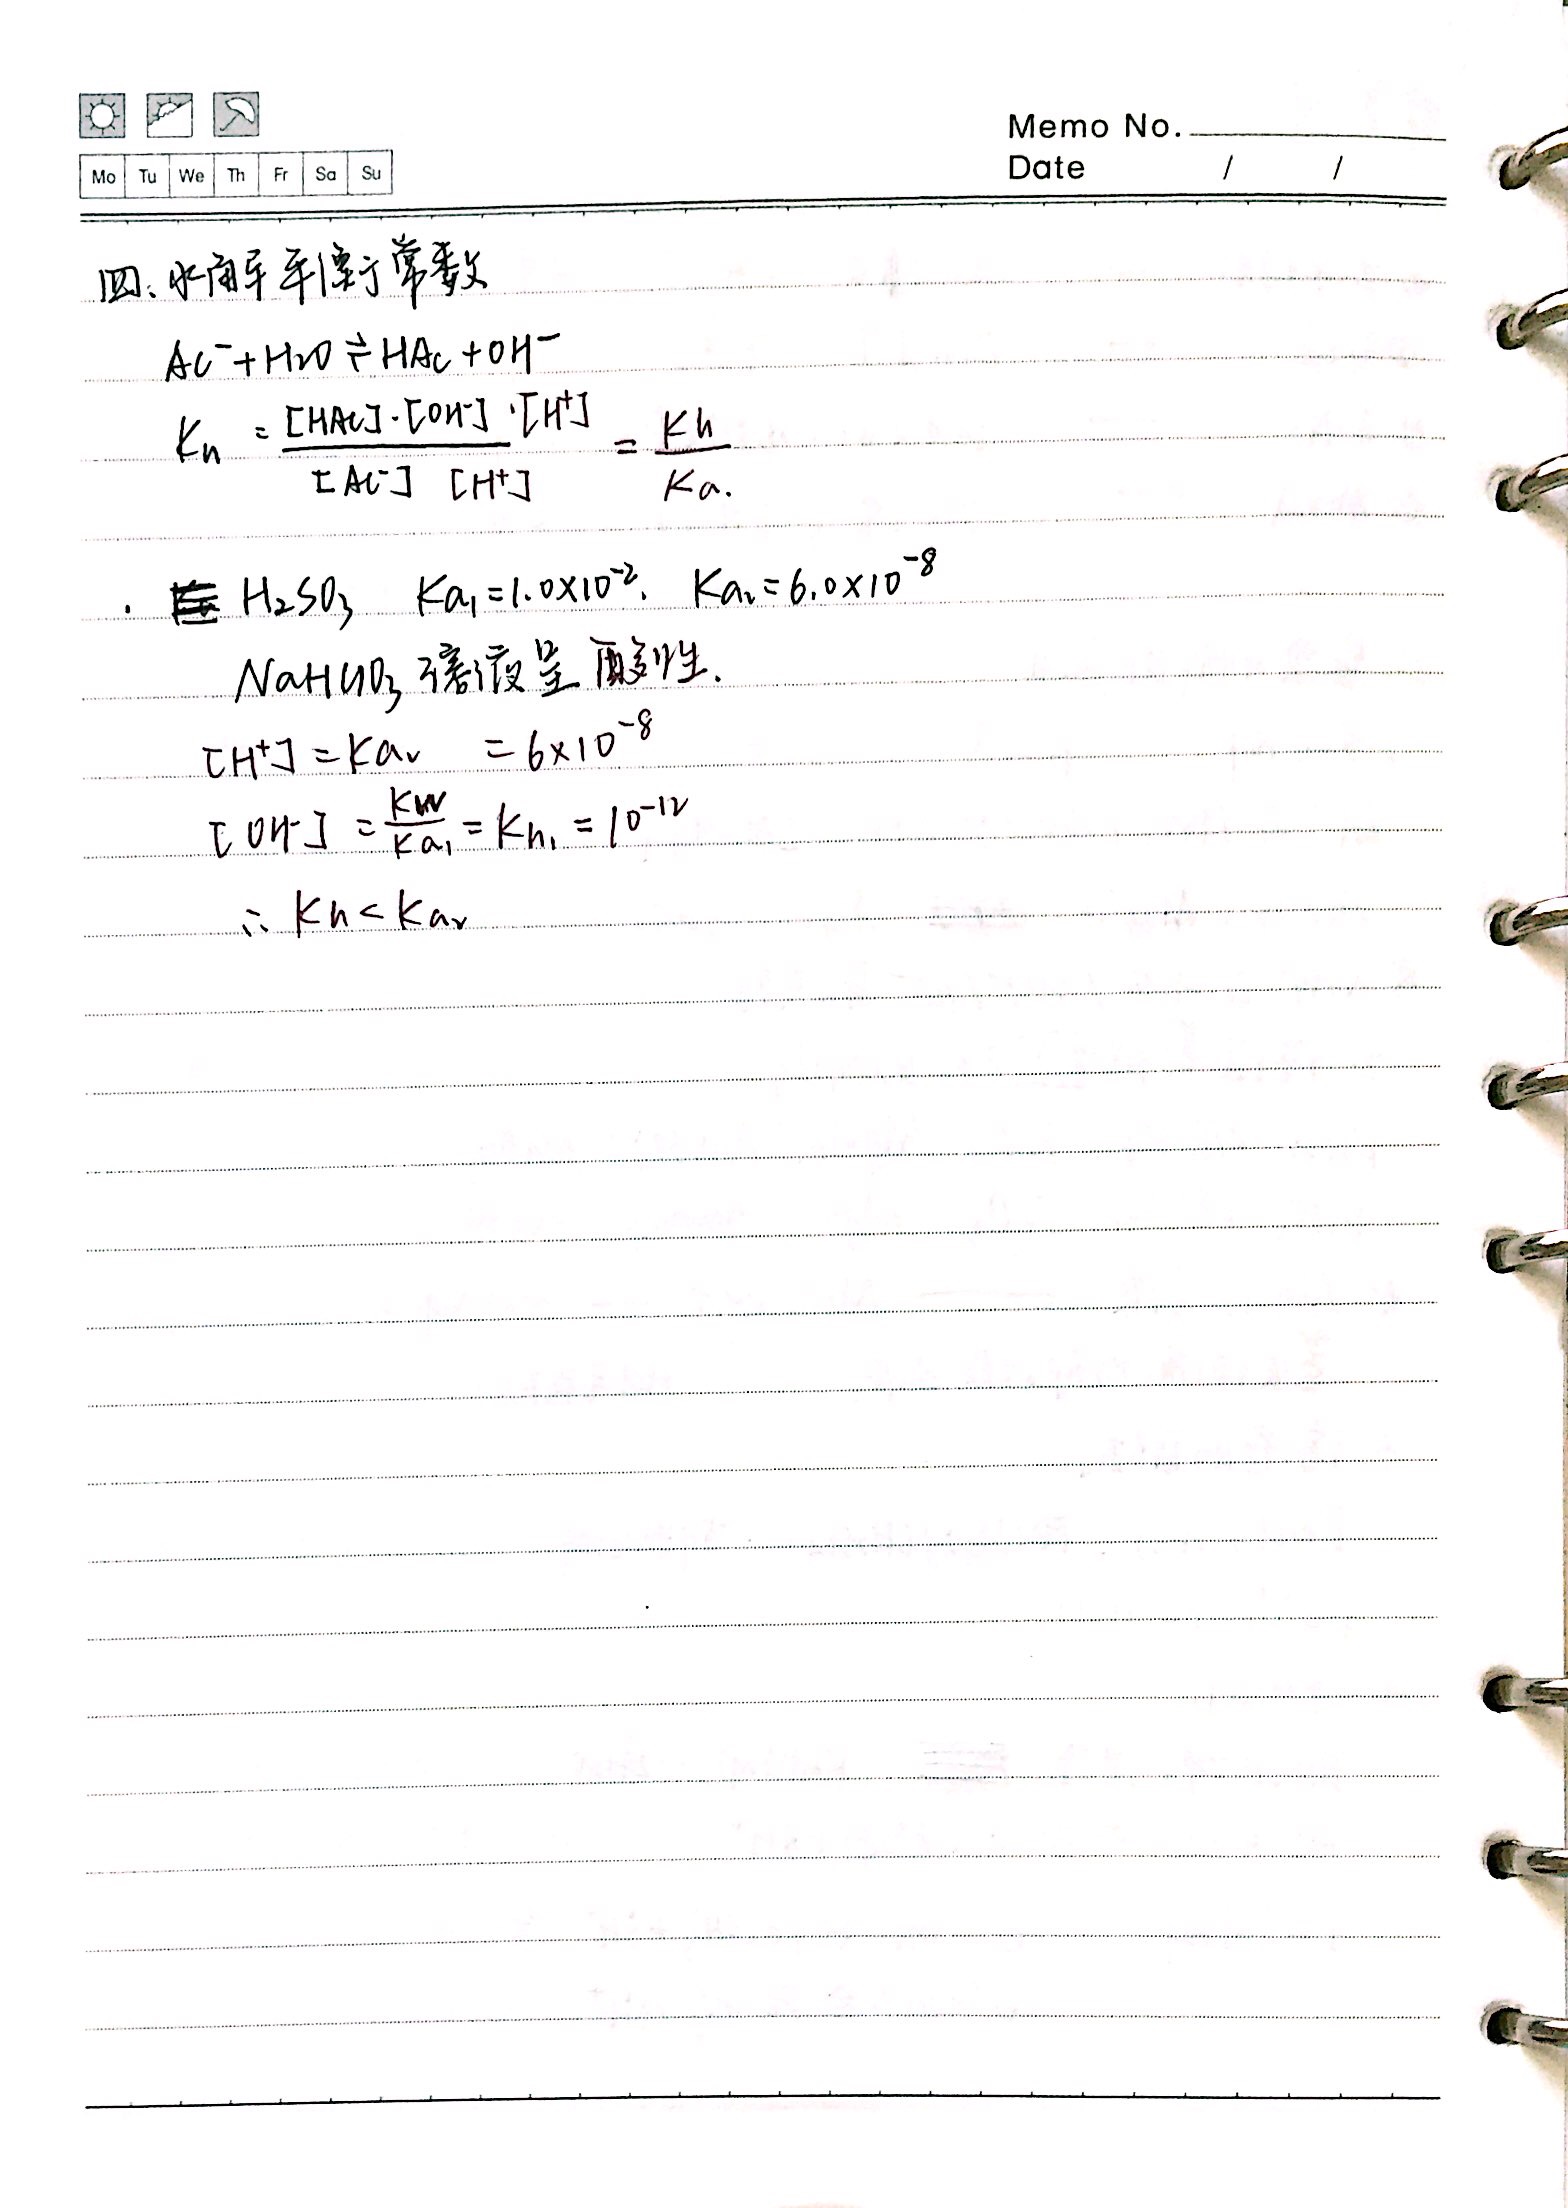 Memo No.
Mo Tu We Th Fr Sa Su
Date / /
四、水解平衡常数
Ac⁻+H₂O⇌HAc+OH⁻
Kh = [HAc]·[OH⁻]·[H⁺] / [Ac⁻] [H⁺] = Kh / Ka.
· H₂SO₃ Ka₁=1.0×10⁻². Ka₂=6.0×10⁻⁸
NaHSO₃溶液呈酸性.
[H⁺]=Ka₂ =6×10⁻⁸
[OH⁻] = Kw / Ka₁ = Kh₁ = 10⁻¹²
∴ Kh<Ka₂